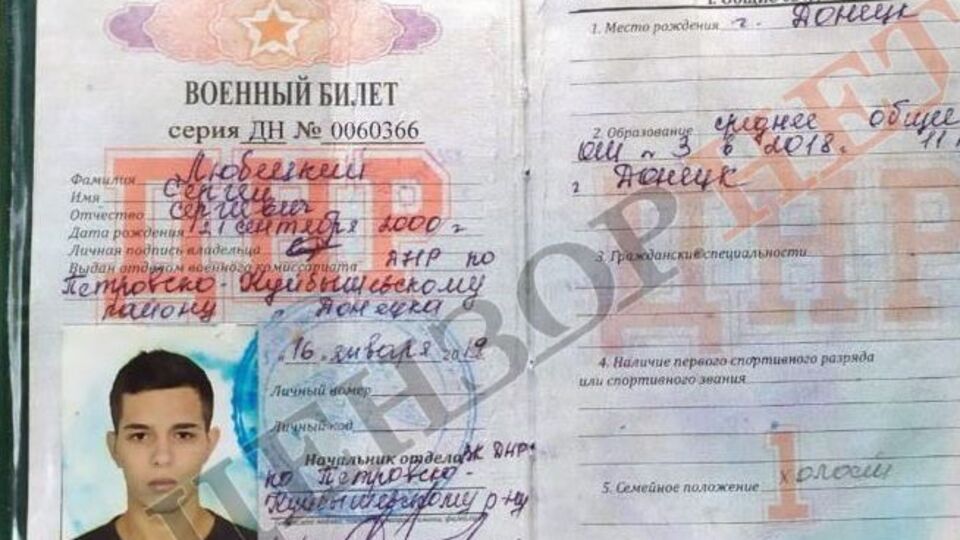 ВОЕННЫЙ БИЛЕТ
серия ДН № 0060366
ДНР
Фамилия Любецкий
Имя Сергей
Отчество Сергеевич
Дата рождения 21 сентября 2000 г
Личная подпись владельца
Выдан отделом военного комиссариата ДНР по
Петровско-Куйбышевскому
району г. Донецка
"16" января 2019
Личный номер
Личный код
Начальник отдела ВК ДНР
по Петровско-
Куйбышевскому р-ну
1. Место рождения г. Донецк
2. Образование среднее общее
ОШ № 3 в 2018г. 11
г Донецк
3. Гражданские специальности
ДНР
4. Наличие первого спортивного разряда
или спортивного звания
5. Семейное положение холост
1
ЦЕНЗОР.НЕТ